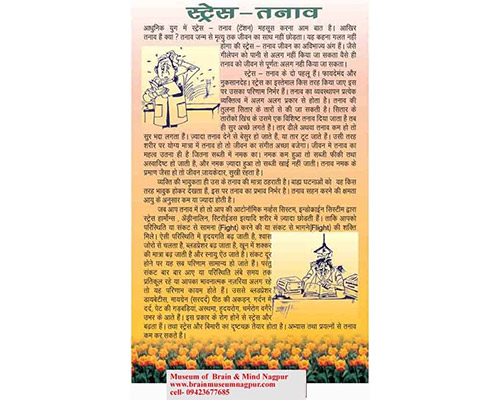 स्ट्रेस – तनाव
आधुनिक युग में स्ट्रेस – तनाव (टेंशन) महसूस करना आम बात है। आखिर
तनाव है क्या ? तनाव जन्म से मृत्यु तक जीवन का साथ नहीं छोड़ता। यह कहना गलत नहीं
होगा की स्ट्रेस – तनाव जीवन का अविभाज्य अंग हैं। जैसे
गीलेपन को पानी से अलग नहीं किया जा सकता वैसे ही
तनाव को जीवन से पूर्णतः अलग नही किया जा सकता।
स्ट्रेस – तनाव के दो पहलू हैं। फायदेमंद और
नुकसानदेह। स्ट्रेस का इस्तेमाल किस तरह किया जाए इस
पर उसका परिणाम निर्भर हैं। तनाव का व्यवस्थापन प्रत्येक
व्यक्तित्व में अलग अलग प्रकार से होता है। तनाव की
तुलना सितार के तारों से की जा सकती है। सितार के
तारोंको खिंच के उसमे एक विशिष्ट तनाव दिया जाता है तब
ही सुर अच्छे लगते है। तार ढीले अथवा तनाव कम हो तो
सुर भद्दा लगता हैं। ज्यादा तनाव देने से बेसुर हो जाते है, या तार टूट जाते है। उसी तरह
शरीर पर योग्य मात्रा में तनाव हो तो जीवन का संगीत अच्छा बजेगा। जीवन में तनाव का
महत्व उतना ही है जितना सब्जी में नमक का। नमक कम हुआ तो सब्जी फीकी तथा
अस्वादिष्ट हो जाती है, और नमक ज्यादा हुआ तो सब्जी खाई नहीं जाती। तनाव नमक के
प्रमाण जैसा हो तो जीवन जायकेदार, सुखी रहता है।
व्यक्ति की भावुकता ही उस के तनाव की मात्रा ठहराती है। बाह्य घटनाओं को वह किस
तरह भावुक होकर देखता हैं, इस पर तनाव का प्रभाव निर्भर है। तनाव सहन करने की क्षमता
आयु के अनुसार कम या ज्यादा होती है।
जब आप तनाव में हो तो आप की आटोनॉमिक नर्व्हस सिस्टम, इन्डोक्राईन सिस्टीम द्वारा
स्ट्रेस हार्मोन्स , अँड्रीनालिन, स्टिरॉईडस इत्यादि शरीर में ज्यादा छोडती हैं। ताकि आपको
परिस्थिति या संकट से सामना (Fight) करने की या संकट से भागने(Flight) की शक्ति
मिले। ऐसी परिस्थिति में हृदयगति बढ़ जाती है, श्वास
जोरो से चलता है, ब्लडप्रेशर बढ़ जाता है, खून में शक्कर
की मात्रा बढ़ जाती है और स्नायु ऐंठ जाते है। संकट दूर
होने पर यह सब परिणाम सामान्य हो जाते हैं। परंतु
संकट बार बार आए या परिस्थिति लंबे समय तक
प्रतिकूल रहे या आपका भावनात्मक नजरिया अलग रहे
तो यह परिणाम कायम होते हैं। उससे ब्लडप्रेशर
डायबेटीस, मायग्रेन (सरदर्द) पीठ की अकड़न, गर्दन में
दर्द, पेट की गड़बडियां, अस्थमा, हृदयरोग, चर्मरोग वगैरे
उभर के आते हैं। इस प्रकार के रोग होने से स्ट्रेस और
बढता हैं। तथा स्ट्रेस और बिमारी का दुष्टचक्र तैयार होता है। अभ्यास तथा प्रयत्नो से तनाव
कम कर सकते हैं।
Museum of Brain & Mind Nagpur
www.brainmuseumnagpur.com
cell- 09423677685